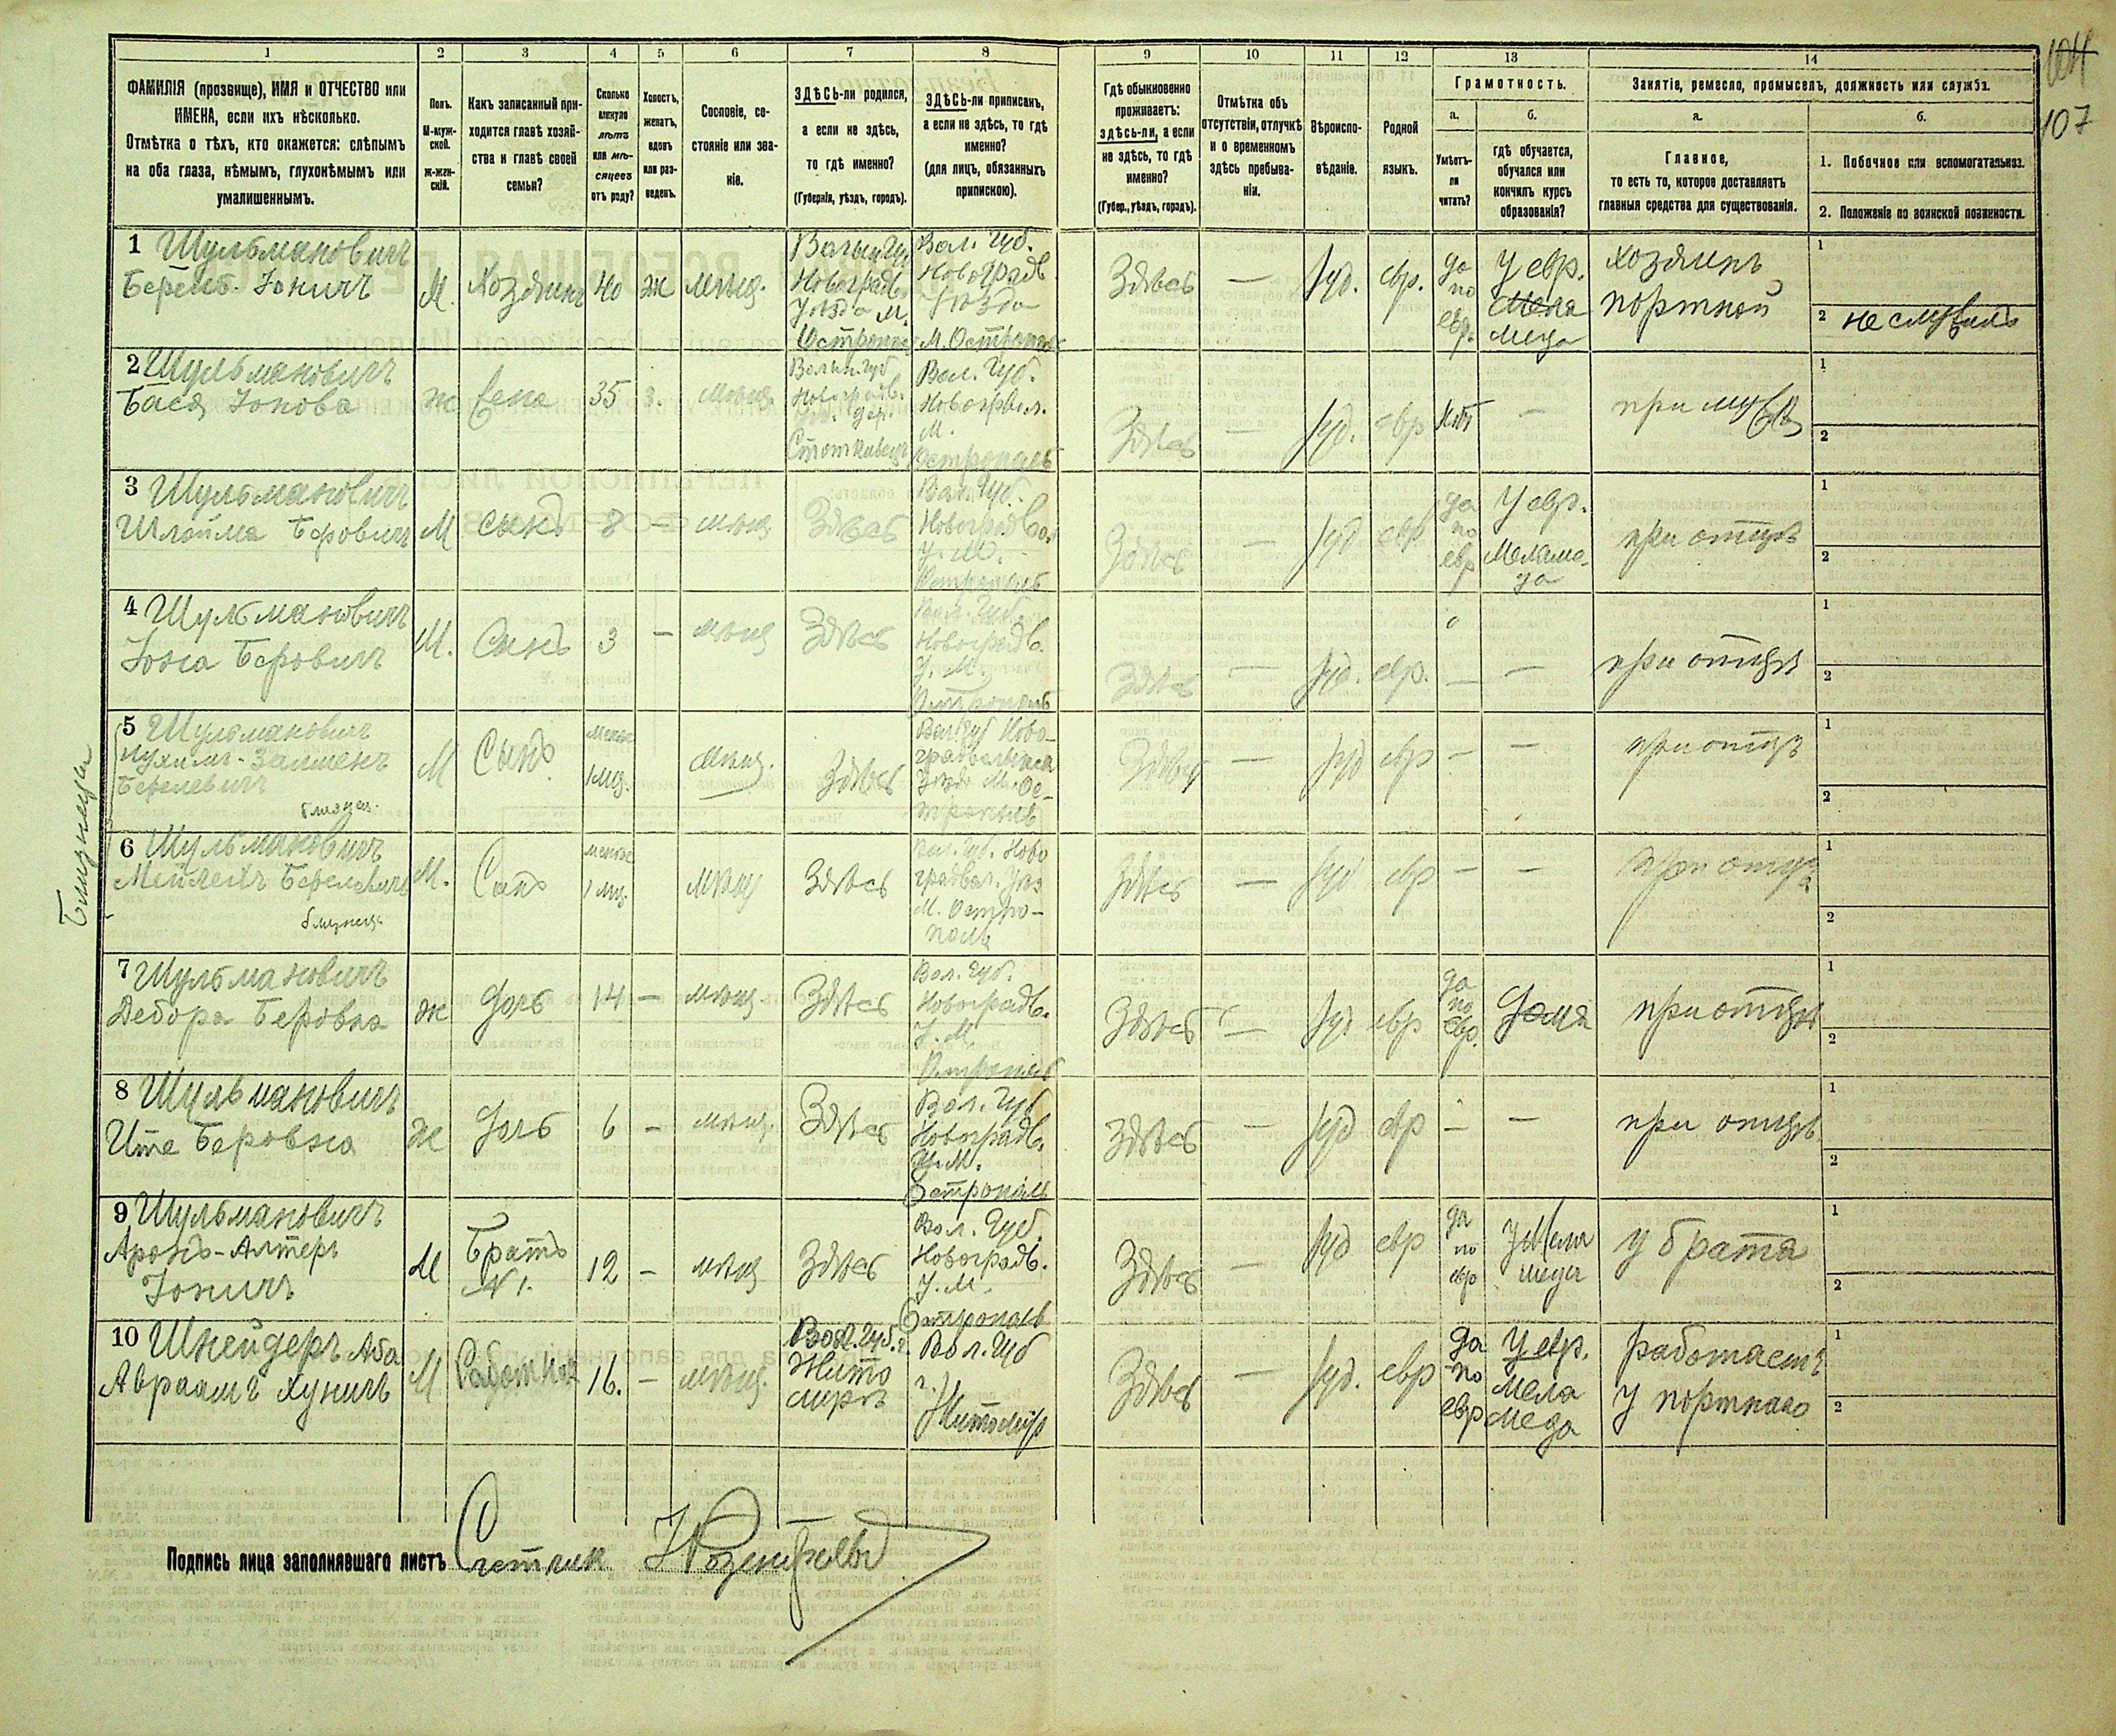 104
107
1 2 3 4 5 6 7 8 9 10 11 12 13 14
ФАМИЛІЯ (прозвище), ИМЯ и ОТЧЕСТВО или
ИМЕНА, если ихъ нѣсколько.
Отмѣтка о тѣхъ, кто окажется: слѣпымъ
на оба глаза, нѣмымъ, глухонѣмымъ или
умалишеннымъ.
Полъ.
М-муж-
ской.
ж-жен-
скій.
Какъ записанный при-
ходится главѣ хозяй-
ства и главѣ своей
семьи?
Сколько
минуло
лѣтъ
или мѣ-
сяцевъ
отъ роду?
Холостъ,
женатъ,
вдовъ
или раз-
веденъ.
Сословіе, со-
стояніе или зва-
ніе.
ЗДѢСЬ-ли родился,
а если не здѣсь,
то гдѣ именно?
(Губернія, уѣздъ, городъ).
ЗДѢСЬ-ли приписанъ,
а если не здѣсь, то гдѣ
именно?
(для лицъ, обязанныхъ
припискою).
Гдѣ обыкновенно
проживаетъ:
здѣсь-ли, а если
не здѣсь, то гдѣ
именно?
(Губер., уѣздъ, городъ).
Отмѣтка объ
отсутствіи, отлучкѣ
и о временномъ
здѣсь пребыва-
ніи.
Вѣроиспо-
вѣданіе.
Родной
языкъ.
Грамотность.
а.
Умѣетъ-
ли
читать?
б.
гдѣ обучается,
обучался или
кончилъ курсъ
образованія?
Занятіе, ремесло, промыселъ, должность или служба.
а.
Главное,
то есть то, которое доставляетъ
главныя средства для существованія.
б.
1. Побочное или вспомогательное.
2. Положеніе по воинской повинности.
1 Шульмановичъ
Берель Іоничъ
М.
Хозяинъ
40
ж
мѣщ.
Волын. Губ.
Новоградъ
Уѣзда М.
Остропол
Вол. Губ.
Новоградъ
Уѣзда
М. Острополь
Здѣсь
—
Іуд.
евр.
да
по
евр.
У евр.
меда
хозяинъ
портной
1
2 не служилъ
2 Шульмановичъ
Бася Іонова
ж
жена
35
з.
мѣщ.
Волын. Губ
Новоградв.
Вол. Губ.
Новогрвол.
М.
Острополь
Здѣсь
—
Іуд.
евр
нѣтъ
—
при мужѣ
1
2
3 Шульмановичъ
Шлойма Беровичъ
М
сынъ
8
—
мѣщ
Здѣсь
Вол. Губ.
Новоградвол
У. М.
Острополь
Здѣсь
—
Іуд.
евр
да
по
евр
У евр.
Меламе-
да
при отцѣ
1
2
4 Шульмановичъ
Іона Беровичъ
М.
Сынъ
3
—
мѣщ
Здѣсь
Вол. Губ.
Новоградв.
У. М.
Острополь
Здѣсь
—
Іуд.
евр.
—
—
при отцѣ
1
2
Близнецы
5 Шульмановичъ
Нухимъ-Залменъ
Берелевичъ
близнец.
М
Сынъ
менѣе
1 мц.
Мѣщ.
Здѣсь
Вол. Губ Ново-
градволынск
Уѣзд М. Ос-
трополь
Здѣсь
—
Іуд
евр
—
—
при отцѣ
1
2
6 Шульмановичъ
Мейлехъ Берелевичъ
близнецъ
М.
Сынъ
менѣе
1 мц.
мѣщ
Здѣсь
Вол. Губ. Ново
градвол. Уѣз
М. Остро-
поль
Здѣсь
—
Іуд
евр
—
—
при отцѣ
1
2
7 Шульмановичъ
Дебора Беровна
ж
Дочь
14
—
мѣщ
Здѣсь
Вол. Губ.
Новоградв.
У. М.
Острополь
Здѣсь
—
Іуд
евр
да
по
евр.
Дома
при отцѣ
1
2
8 Шульмановичъ
Ите Беровна
Ж
Дочь
6
—
мѣщ.
Здѣсь
Вол. Губ
Новоградв.
У. М.
Острополь
Здѣсь
—
Іуд
евр
—
—
при отцѣ
1
2
9 Шульмановичъ
Аронъ-Алтеръ
Іоничъ
М
Братъ
№ 1.
12
—
мѣщ
Здѣсь
Вол. Губ.
Новоградв.
У. М.
Острополь
Здѣсь
—
Іуд
евр
да
по
евр
у Мела
меда
у брата
1
2
10 Шнейдеръ Аба
Авраамъ Хуничъ
М
Работник
16.
—
мѣщ.
Вол. Губ. г.
Жито
миръ
Вол. Губ
г.
Житомір
Здѣсь
—
Іуд.
евр
да
по
евр
У евр.
мела
меда
работаетъ
у портнаго
1
2
Подпись лица заполнявшаго листъ Счетчик Розенфельд